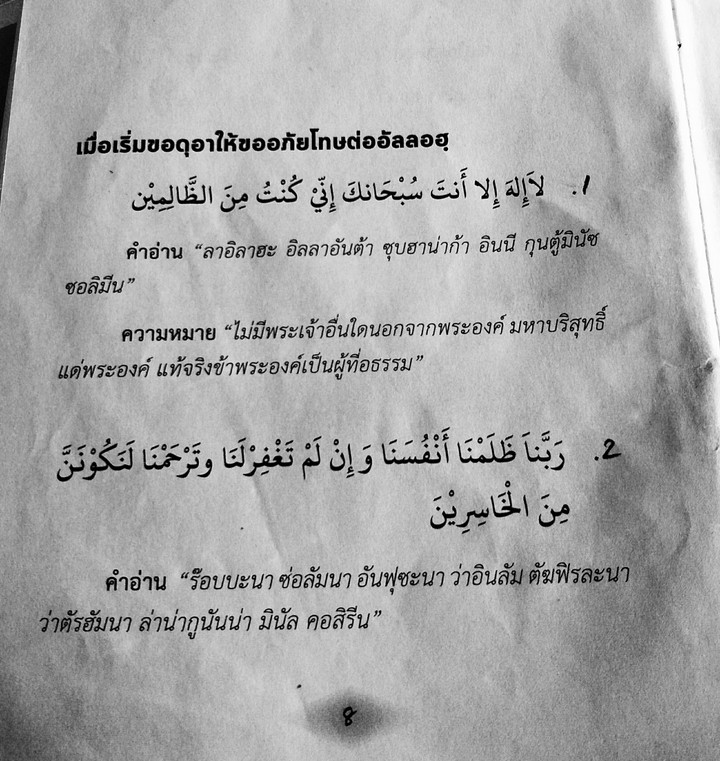 เมื่อเริ่มขอดุอาให้ขออภัยโทษต่ออัลลอฮฺ
1. لاَإِلهَ إِلا أَنتَ سُبْحَانكَ إِنِّيْ كُنْتُ مِنَ الظَّالِمِيْن
คำอ่าน “ลาอิลาฮะ อิลลาอันต้า ซุบฮาน่าก้า อินนี กุนตู้มินัซ
ซอลิมีน”
ความหมาย “ไม่มีพระเจ้าอื่นใดนอกจากพระองค์ มหาบริสุทธิ์
แด่พระองค์ แท้จริงข้าพระองค์เป็นผู้ที่อธรรม”
2. رَبَّناَ ظَلَمْنَا أَنْفُسَنَا وَإِنْ لَمْ تَغْفِرْلَنَا وتَرْحَمْنَا لَنَكُوْنَنَّ
مِنَ الْخَاسِرِيْنَ
คำอ่าน “ร๊อบบะนา ซ่อลัมนา อันฟุซะนา ว่าอินลัม ตัฆฟิรละนา
ว่าตัรฮัมนา ล่าน่ากูนันน่า มินัล คอสิรีน”
8